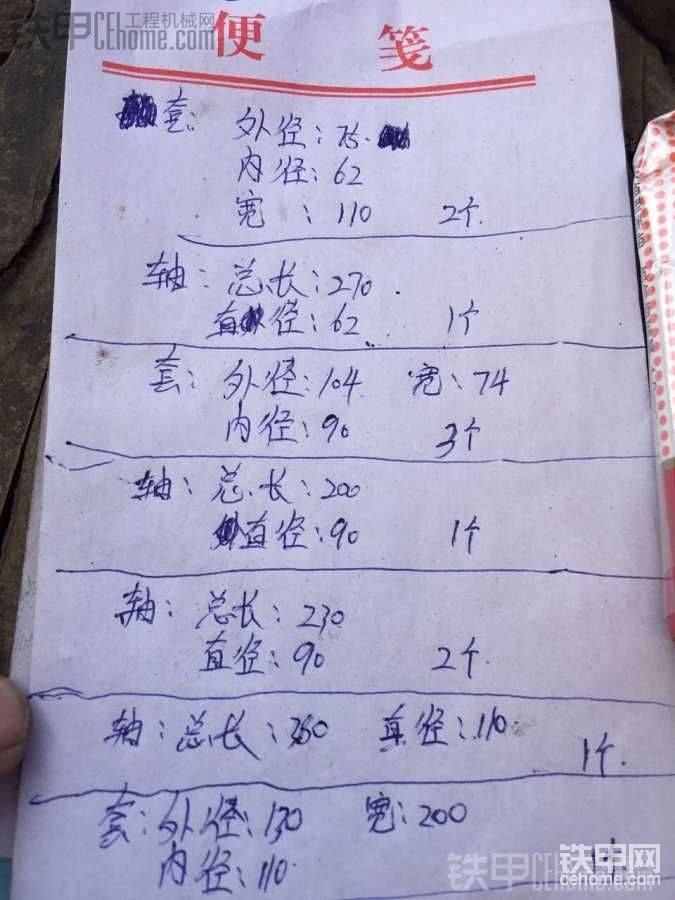 铁甲 工程机械网
CEhome.com
便 笺
套: 外径: 75.
内径: 62
宽 : 110 2个.
轴: 总长: 270.
直径: 62 1个
套: 外径: 104. 宽: 74
内径: 90 3个
轴: 总长: 200
直径: 90 1个
轴: 总长: 230
直径: 90 2个
轴: 总长: 360 直径: 110.
1个.
套: 外径: 130 宽: 200
内径: 110.
铁甲 CEhome.com
铁甲网
cehome.com